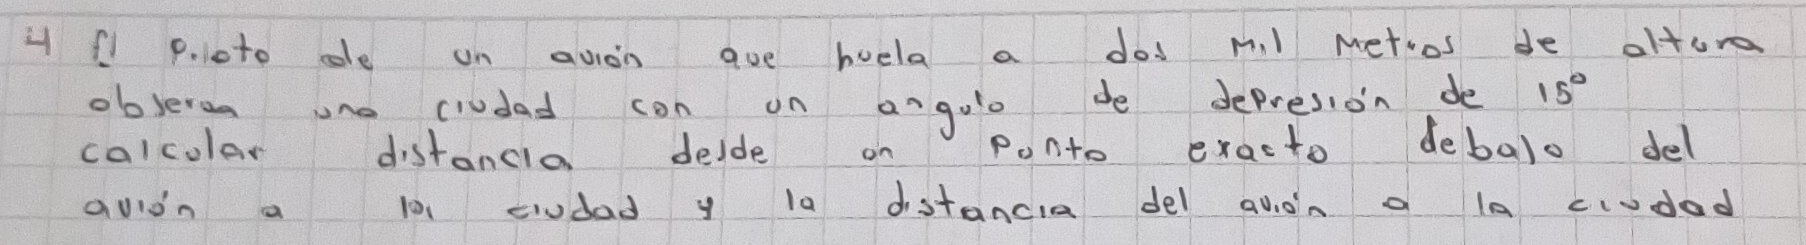 4 El piloto de un avión que huela a dos mil metros de altura
observa una ciudad con un angulo de depresión de 15°
calcular distancia desde un punto exacto debalo del
avión a la ciudad y la distancia del avión a la ciudad